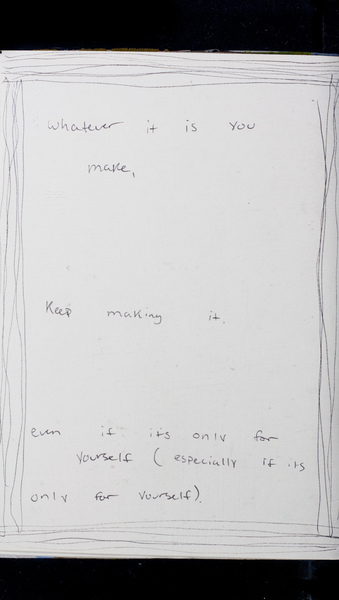 whatever it is you
make,
Keep making it.
even if it's only for
yourself (especially if its
only for yourself).